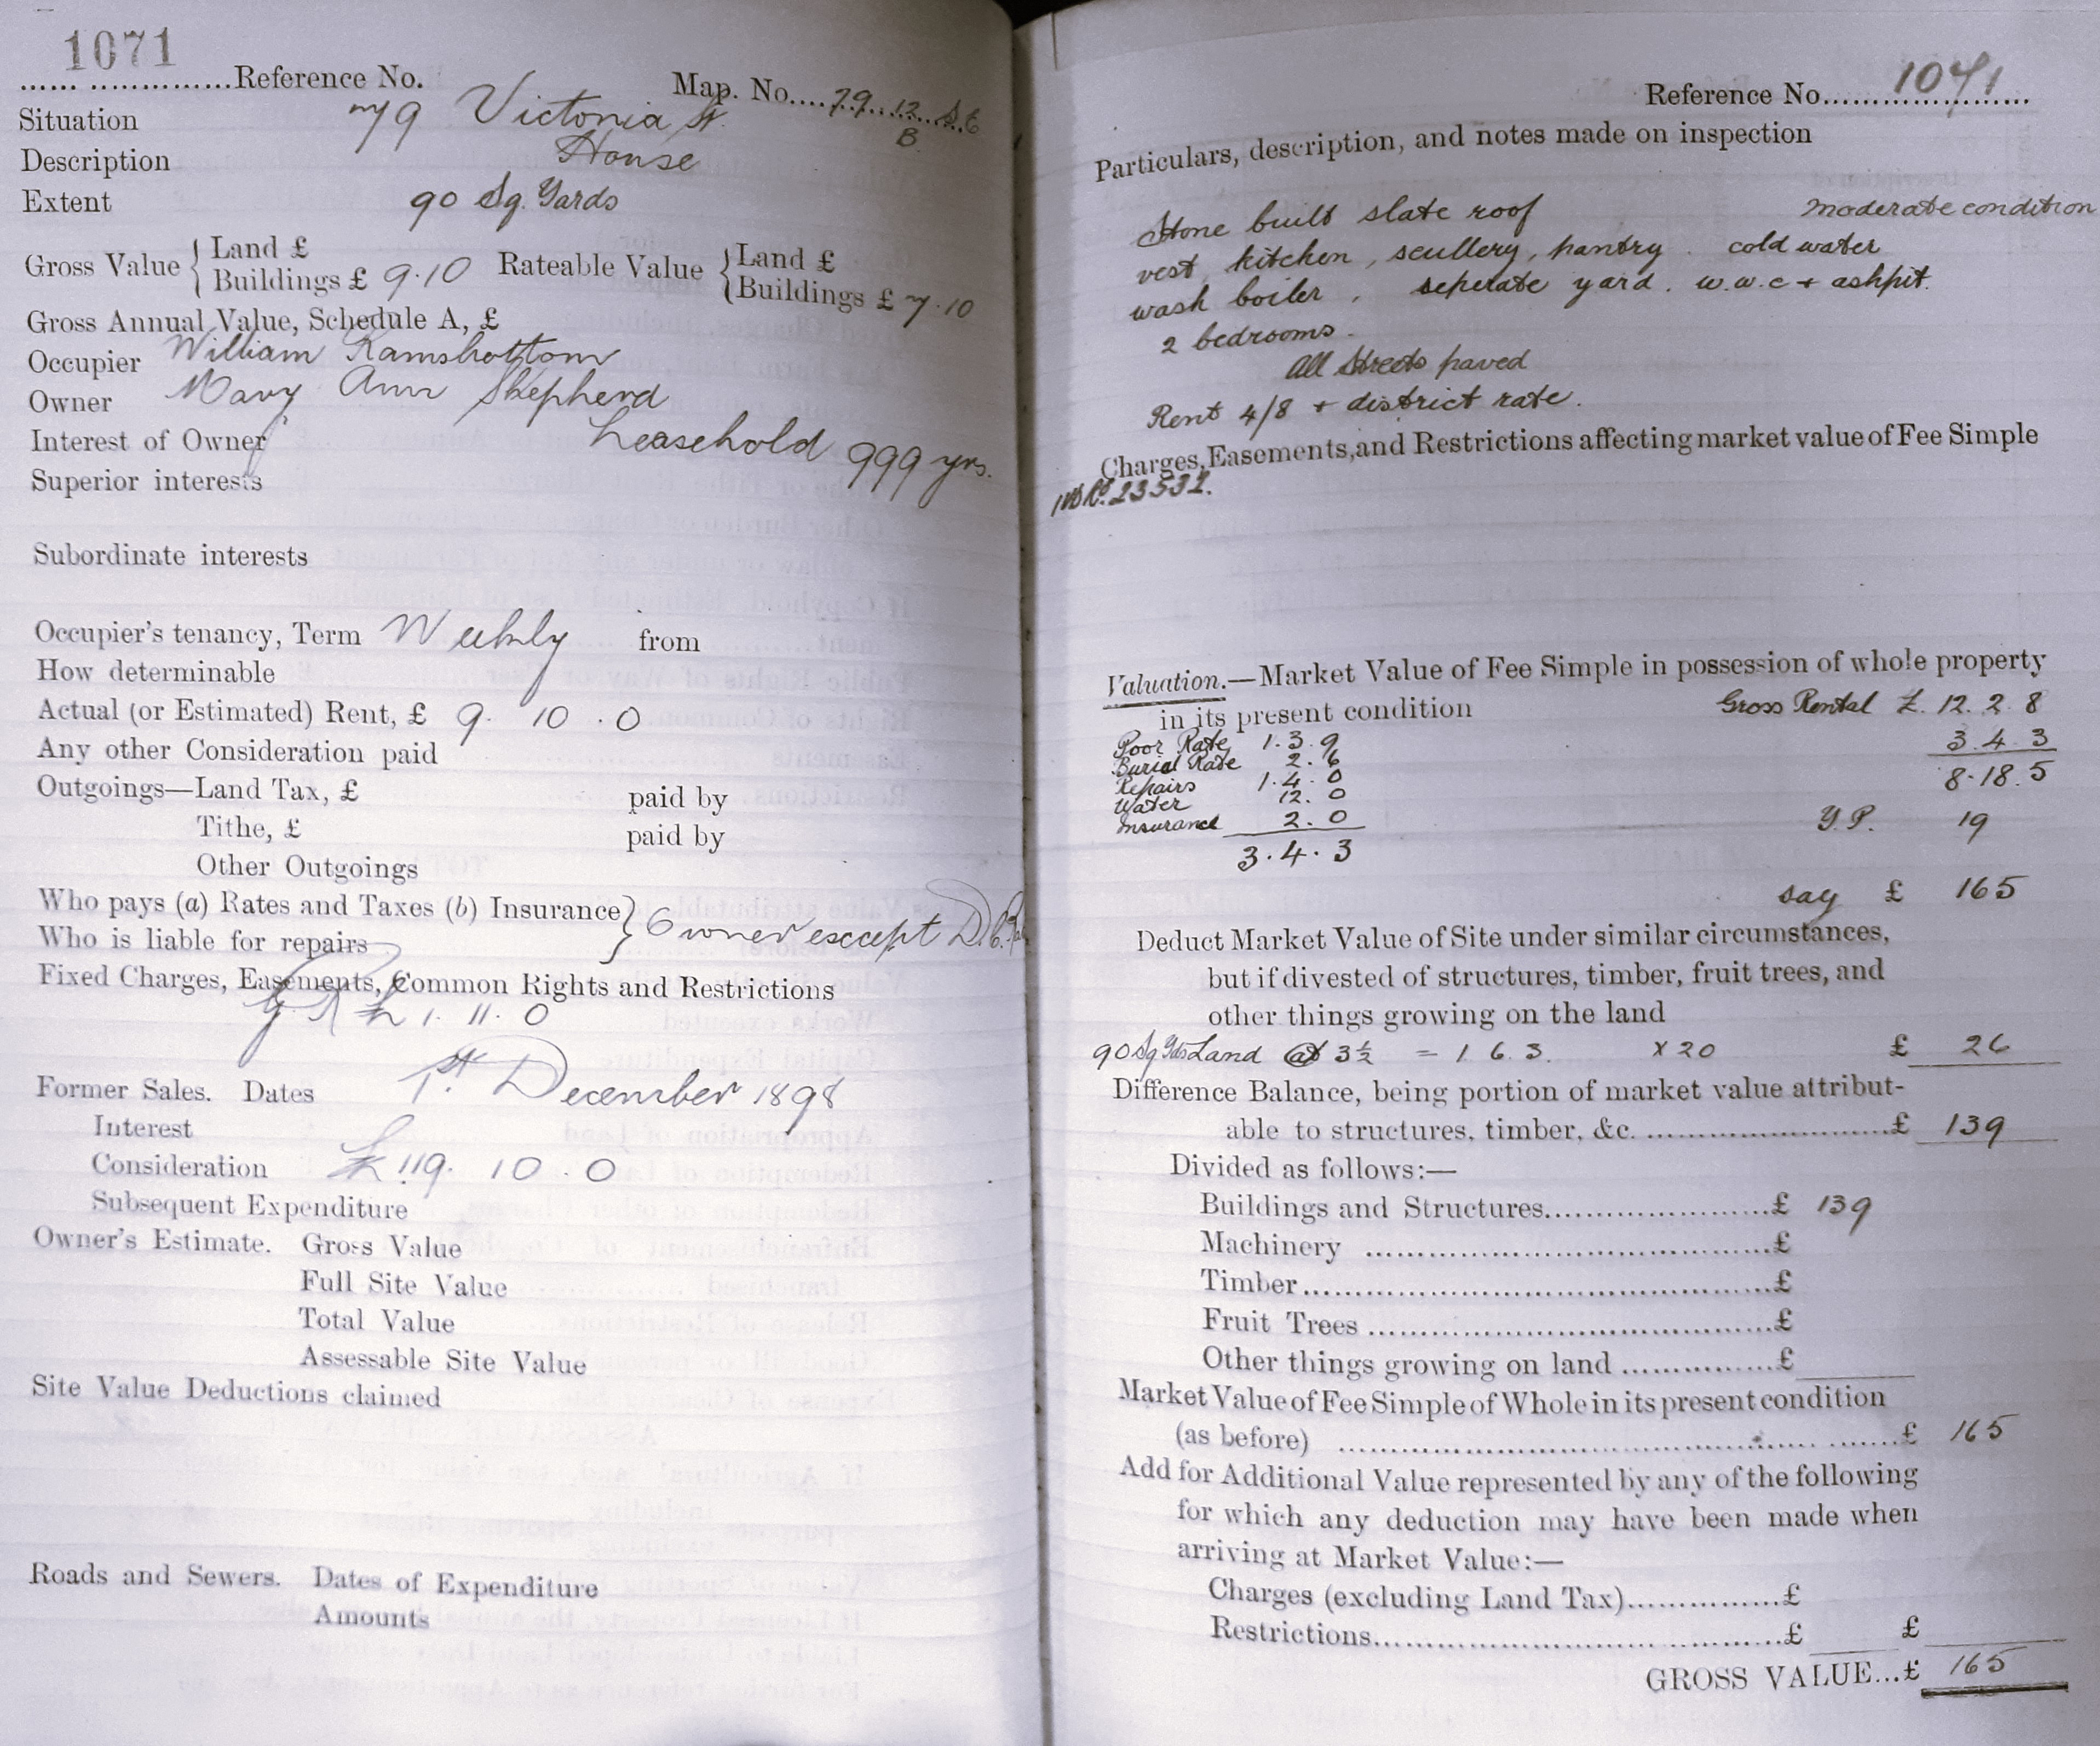 1071
...... ...............Reference No. Map. No....79..12...S.E
B
Situation 79 Victoria St.
Description House
Extent 90 Sq. Yards
Gross Value { Land £ Rateable Value { Land £
Buildings £ 9.10 Buildings £ 7.10
Gross Annual Value, Schedule A, £
Occupier William Ramsbottom
Owner Mary Ann Shepherd
Interest of Owner Leasehold 999 yrs.
Superior interests
Subordinate interests
Occupier's tenancy, Term Weekly from
How determinable
Actual (or Estimated) Rent, £ 9. 10 . 0
Any other Consideration paid
Outgoings—Land Tax, £ paid by
Tithe, £ paid by
Other Outgoings
Who pays (a) Rates and Taxes (b) Insurance }
Who is liable for repairs } Owner except D.
Fixed Charges, Easements, Common Rights and Restrictions
G. R £ 1. 11. 0
Former Sales. Dates 1st. December 1898
Interest
Consideration £119. 10 . 0
Subsequent Expenditure
Owner's Estimate. Gross Value
Full Site Value
Total Value
Assessable Site Value
Site Value Deductions claimed
Roads and Sewers. Dates of Expenditure
Amounts
Reference No. 1071
Particulars, description, and notes made on inspection
Stone built slate roof moderate condition
vest, kitchen, scullery, pantry. cold water
wash boiler, seperate yard. w.w.c + ashpit.
2 bedrooms.
All Streets paved
Rent 4/8 + district rate.
Charges, Easements, and Restrictions affecting market value of Fee Simple
23532.
Valuation.—Market Value of Fee Simple in possession of whole property
in its present condition Gross Rental £. 12. 2. 8
Poor Rate 1. 3. 9 3. 4. 3
Burial Rate 2. 6 8. 18. 5
Repairs 1. 4. 0
Water 12. 0 Y.P. 19
Insurance 2. 0
3. 4. 3
say £ 165
Deduct Market Value of Site under similar circumstances,
but if divested of structures, timber, fruit trees, and
other things growing on the land
90 Sq Yds Land @ 3½ = 1. 6. 3. x 20 £ 26
Difference Balance, being portion of market value attribut-
able to structures, timber, &c. ..............................£ 139
Divided as follows:—
Buildings and Structures........................£ 139
Machinery ..........................................£
Timber.................................................£
Fruit Trees ..........................................£
Other things growing on land ................£
Market Value of Fee Simple of Whole in its present condition
(as before) ..........................................................£ 165
Add for Additional Value represented by any of the following
for which any deduction may have been made when
arriving at Market Value:—
Charges (excluding Land Tax)................£
Restrictions..........................................£ £
GROSS VALUE...£ 165